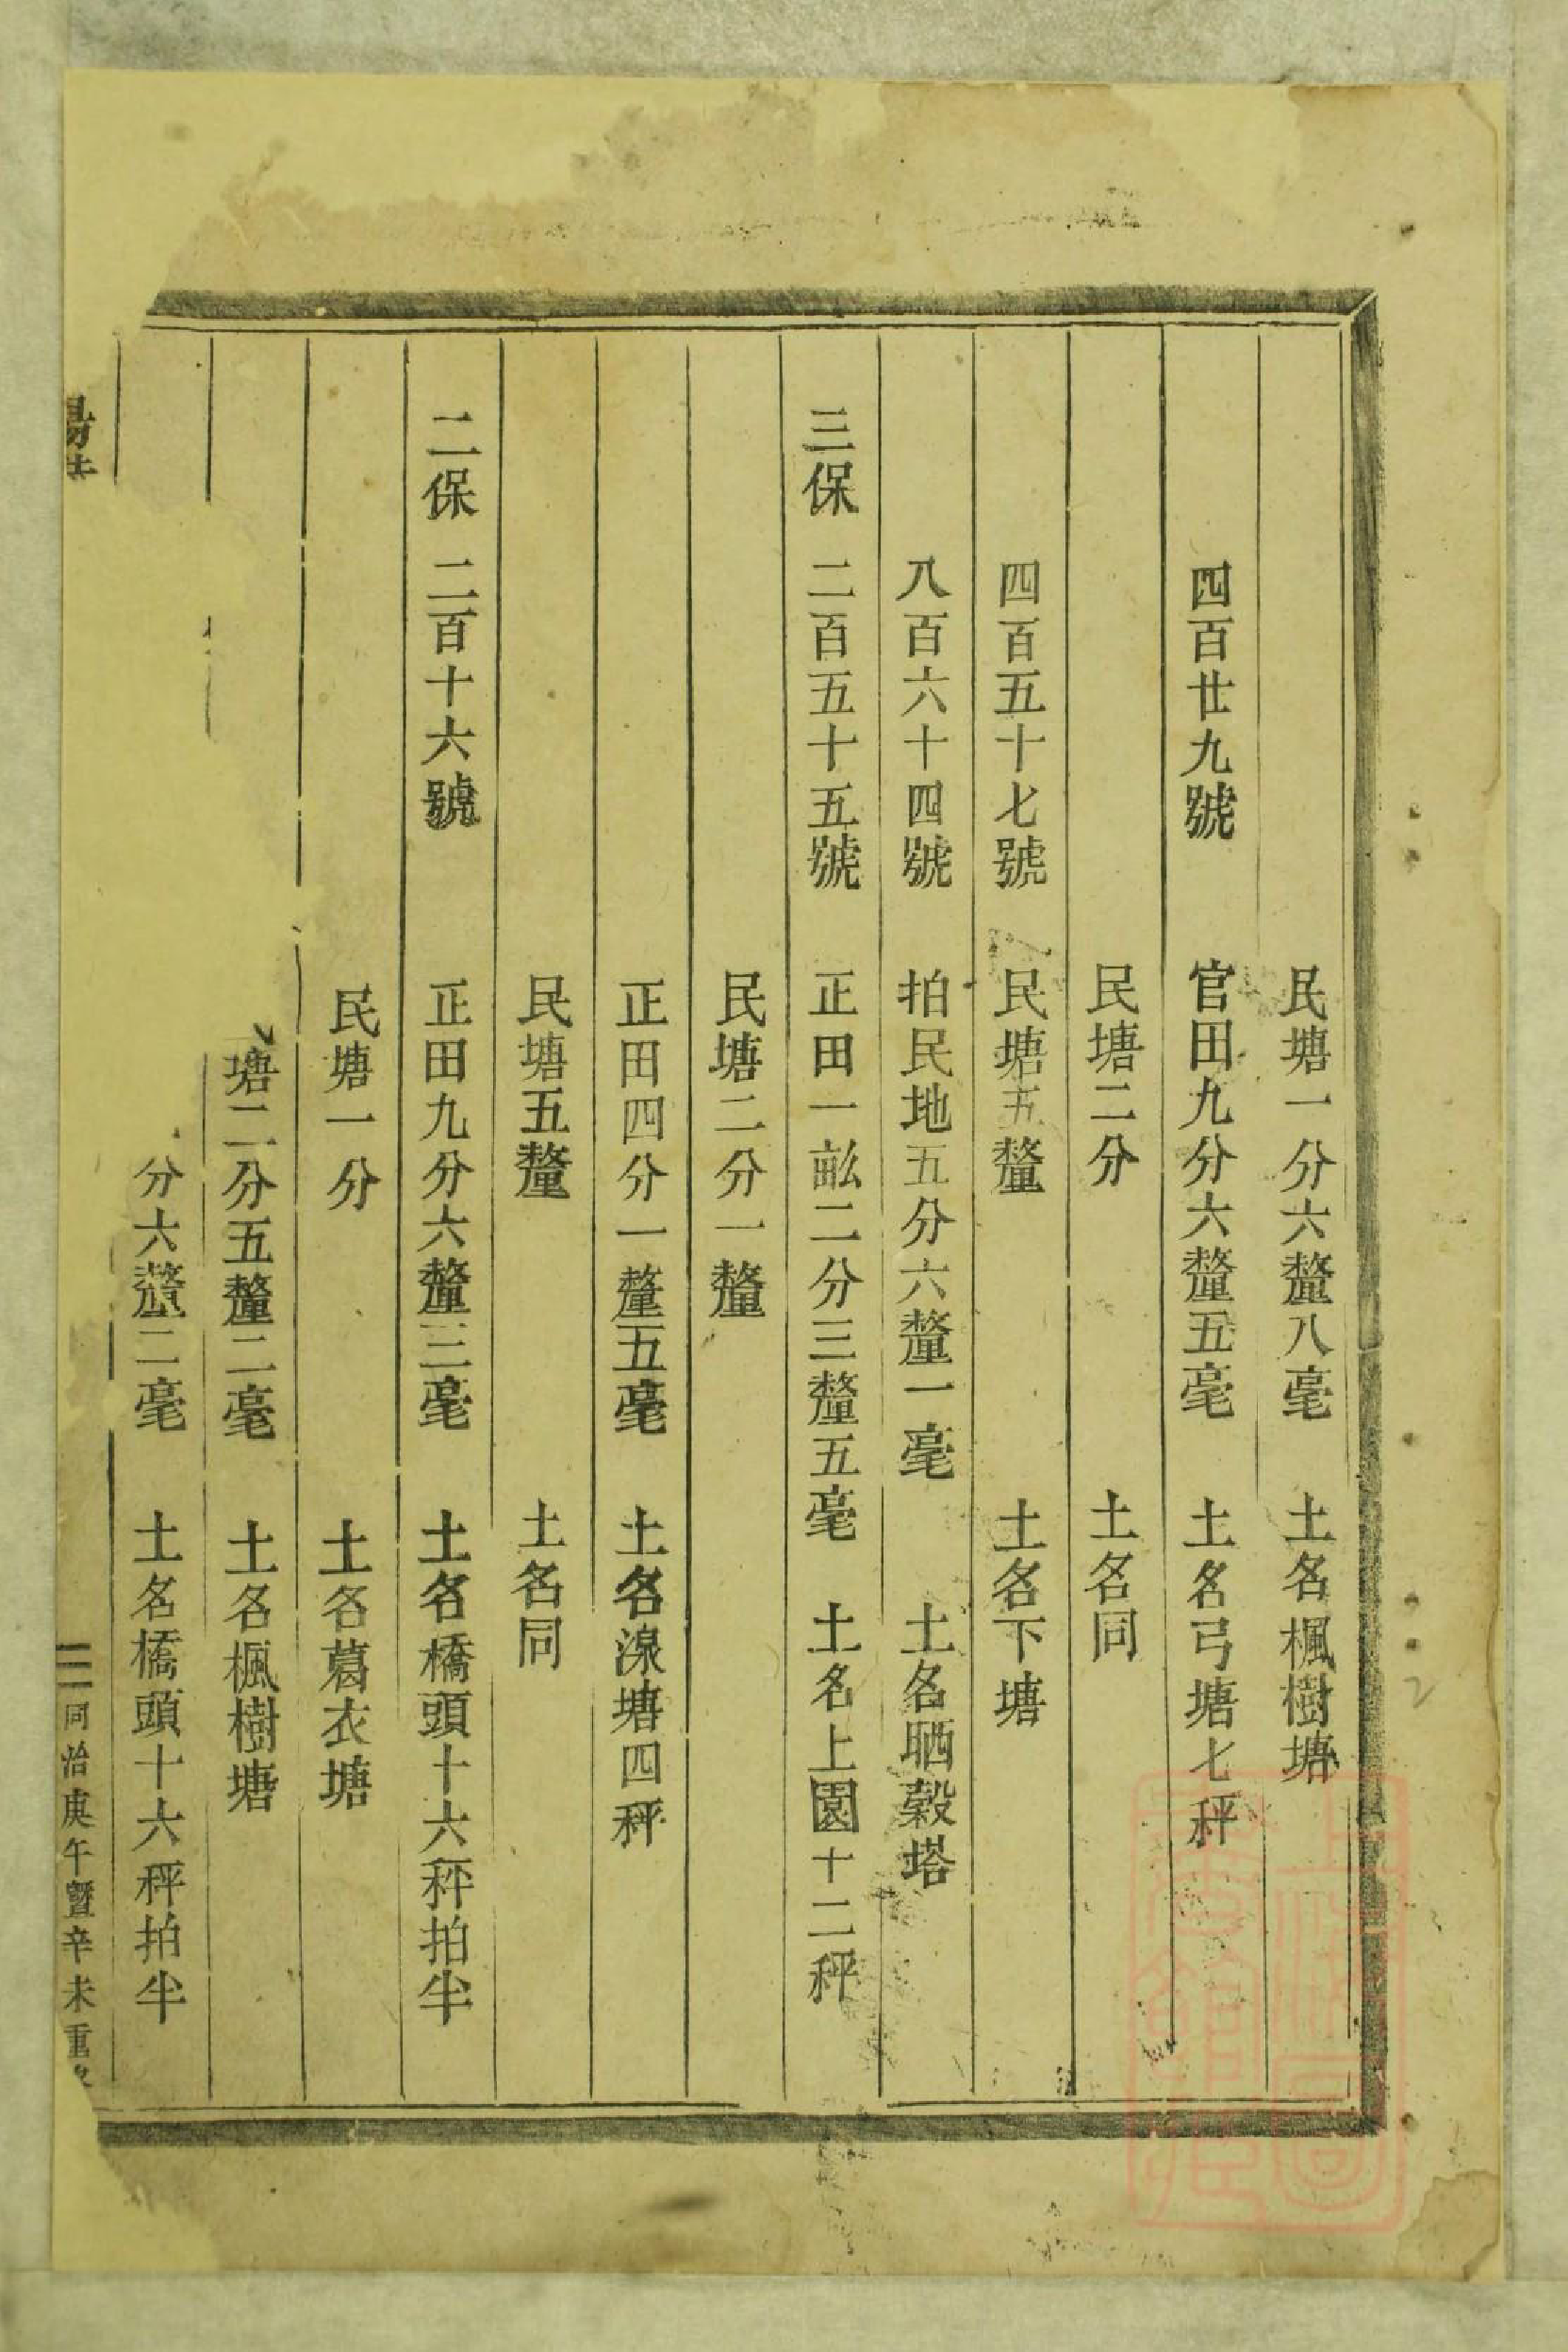 民塘一分六釐八毫 土名楓樹塘
四百廿九號 官田九分六釐五毫 土名弓塘七秤
民塘二分 土名同
四百五十七號 民塘五釐 土名下塘
八百六十四號 拍民地五分六釐一毫 土名晒穀塔
三保 二百五十五號 正田一畝二分三釐五毫 土名上園十二秤
民塘二分一釐
正田四分一釐五毫 土名湶塘四秤
民塘五釐 土名同
二保 二百十六號 正田九分六釐三毫 土名橋頭十六秤拍半
民塘一分 土名葛衣塘
塘二分五釐二毫 土名楓樹塘
分六釐二毫 土名橋頭十六秤拍半
同治庚午暨辛未重